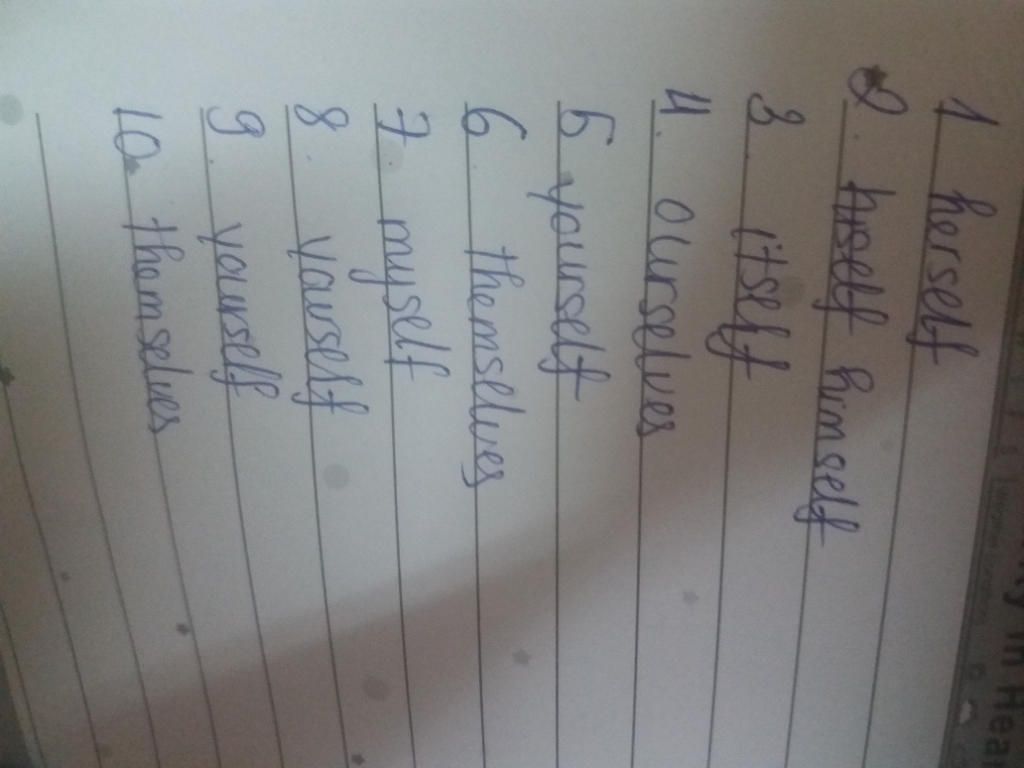 1 herself
2. himself
3. itself
4. ourselves
5 yourself
6 themselves
7 myself
8. yourself
9. yourself
10. themselves